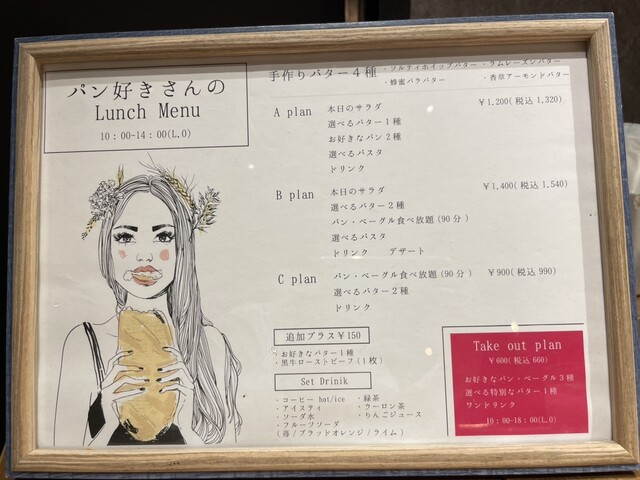 パン好きさんの
Lunch Menu
10：00-14：00(L.O)
手作りバター４種
・ソルティホイップバター ・ラムレーズンバター
・蜂蜜バラバター ・香草アーモンドバター
A plan 本日のサラダ ￥1,200(税込 1,320)
選べるバター１種
お好きなパン２種
選べるパスタ
ドリンク
B plan 本日のサラダ ￥1,400(税込 1,540)
選べるバター２種
パン・ベーグル食べ放題(90分)
選べるパスタ
ドリンク デザート
C plan パン・ベーグル食べ放題(90分) ￥900(税込 990)
選べるバター２種
ドリンク
追加プラス￥150
・お好きなバター１種
・黒牛ローストビーフ(１枚)
Set Drinik
・コーヒー hot/ice ・緑茶
・アイスティ ・ウーロン茶
・ソーダ水 ・りんごジュース
・フルーツソーダ
(苺/ブラッドオレンジ/ライム)
Take out plan
￥600(税込 660)
お好きなパン・ベーグル３種
選べる特別なバター１種
ワンドリンク
10：00-18：00(L.O)